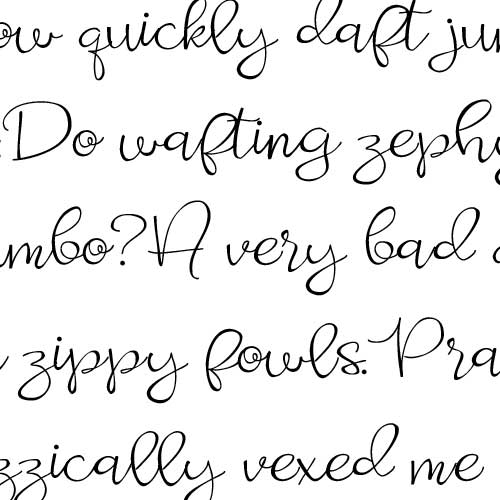 ow quickly daft jum
Do wafting zephy
umbo? A very bad
zippy fowls. Pra
zzically vexed me